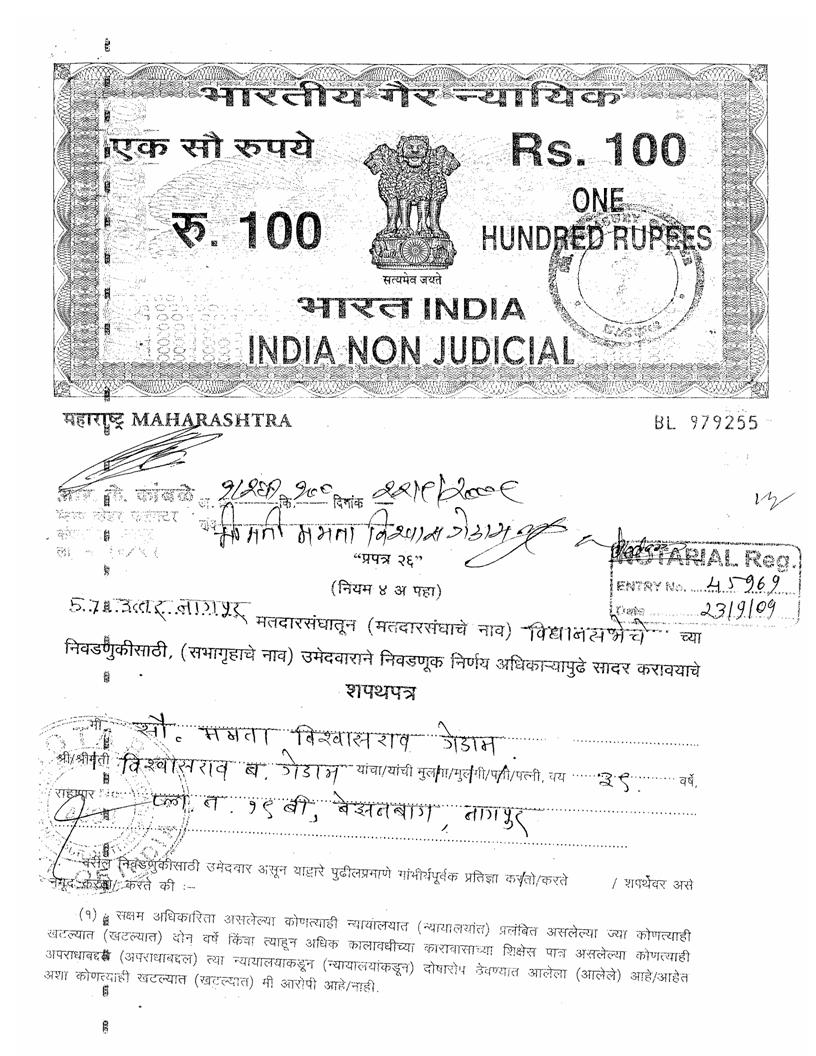 भारतीय गैर न्यायिक
एक सौ रुपये
Rs. 100
रु. 100
ONE
HUNDRED RUPEES
सत्यमेव जयते
भारत INDIA
INDIA NON JUDICIAL
महाराष्ट्र MAHARASHTRA
BL 979255
कांबळे
दिनांक
श्रीमती ममता विश्वास गेडाम
"प्रपत्र २६"
(नियम ४ अ पहा)
NOTARIAL Reg.
ENTRY No. 45969
Date 23/9/09
उत्तर नागपूर मतदारसंघातून (मतदारसंघाचे नाव) विधानसभेचे च्या
निवडणुकीसाठी, (सभागृहाचे नाव) उमेदवाराने निवडणूक निर्णय अधिकाऱ्यापुढे सादर करावयाचे
शपथपत्र
मी सौ. ममता विश्वासराव गेडाम
श्री/श्रीमती विश्वासराव ब. गेडाम यांचा/यांची मुलगा/मुलगी/पती/पत्नी, वय ३९ वर्षे,
राहणार प्लॉ. न. १९ बी, बेझनबाग, नागपुर
वरील निवडणुकीसाठी उमेदवार असून याद्वारे पुढीलप्रमाणे गांभीर्यपूर्वक प्रतिज्ञा करतो/करते / शपथेवर असे
नमूद करतो/ करते की :–
(१) सक्षम अधिकारिता असलेल्या कोणत्याही न्यायालयात (न्यायालयांत) प्रलंबित असलेल्या ज्या कोणत्याही
खटल्यात (खटल्यात) दोन वर्षे किंवा त्याहून अधिक कालावधीच्या कारावासाच्या शिक्षेस पात्र असलेल्या कोणत्याही
अपराधाबद्दल (अपराधाबद्दल) त्या न्यायालयाकडून (न्यायालयांकडून) दोषारोप ठेवण्यात आलेला (आलेले) आहे/आहेत
अशा कोणत्याही खटल्यात (खटल्यात) मी आरोपी आहे/नाही.